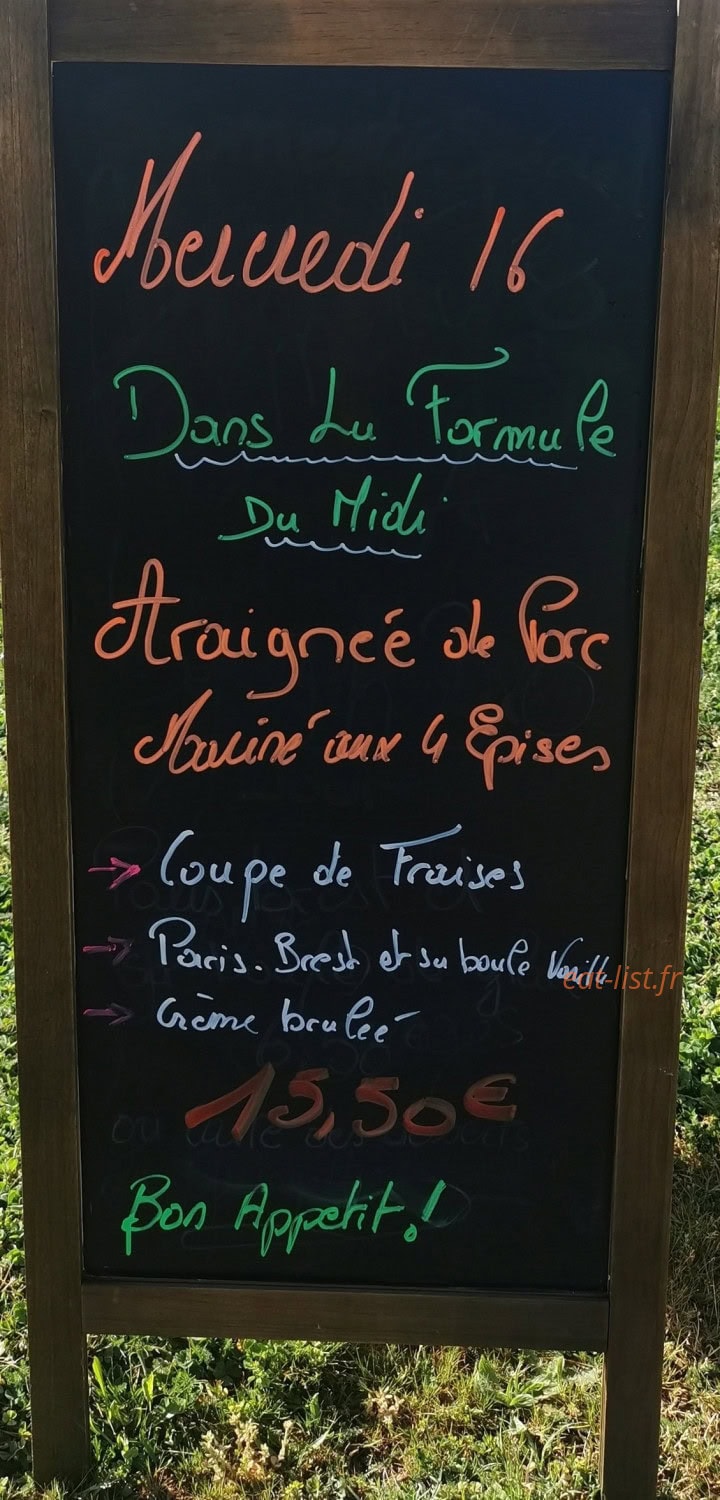 Mercredi 16
Dans La Formule
Du Midi
Araigneé de Porc
Mariné aux 4 Epises
→ Coupe de Fraises
→ Paris.Brest et sa boule Vanille
→ Crème bruleé
15,50€
Bon Appetit.!
eat-list.fr